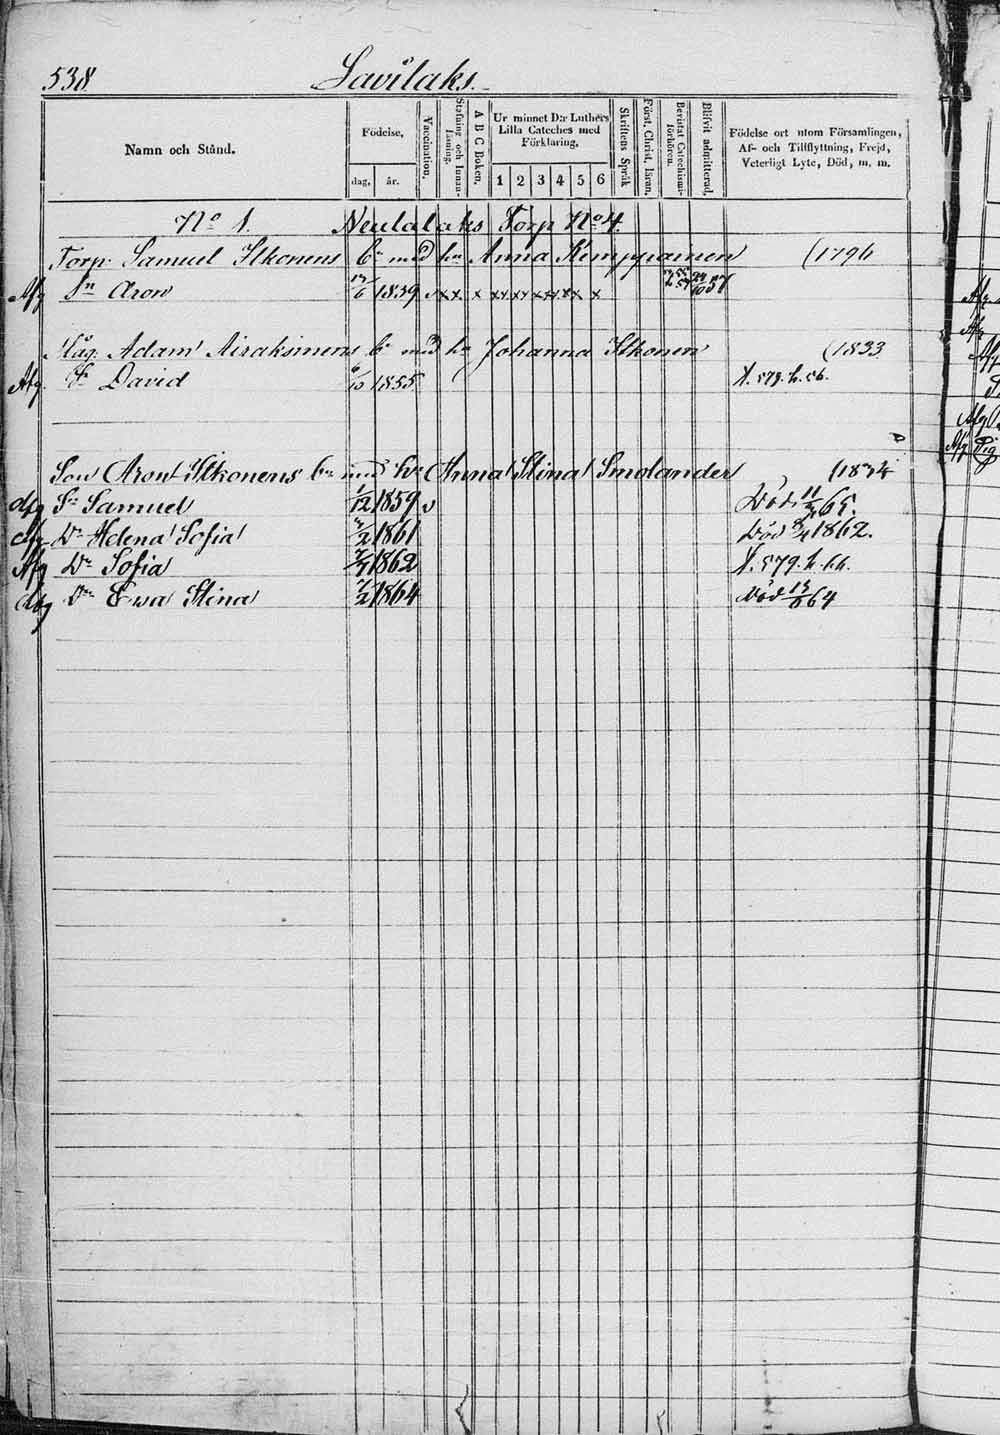 538 Savilaks.
Namn och Stånd. Födelse, dag, år. Vaccination. Stafning och Innanläsning. A B C Boken. Ur minnet D:r Luthers Lilla Cateches med Förklaring. 1 2 3 4 5 6 Skriftens Språk Först. Christ. läran. Bevistat Catechismi-förhören. Blifvit admitterad. Födelse ort utom Församlingen, Af- och Tillflyttning, Frejd, Veterligt Lyte, Död, m. m.
No 1. Neulalaks Torp No 4.
Torp. Samuel Itkonens bn med hu Anna Kemppainen (1796
Afg Sn Aron 1839 v x x x x x x x x x x x x 57
Adam Airaksinens bn med hu Johanna Itkonen (1833
Afg Sn David 1855 X. 579. h. 56.
Son Aron Itkonens bn med hu Anna Stina Smolander (1834
Afg Sn Samuel 1/12 1859 v Död 65.
Afg Dr Helena Sofia 1861 Död 1862.
Afg Dr Sofia 1862 X. 579. h.
Afg Dr Ewa Stina 1864 Död 64